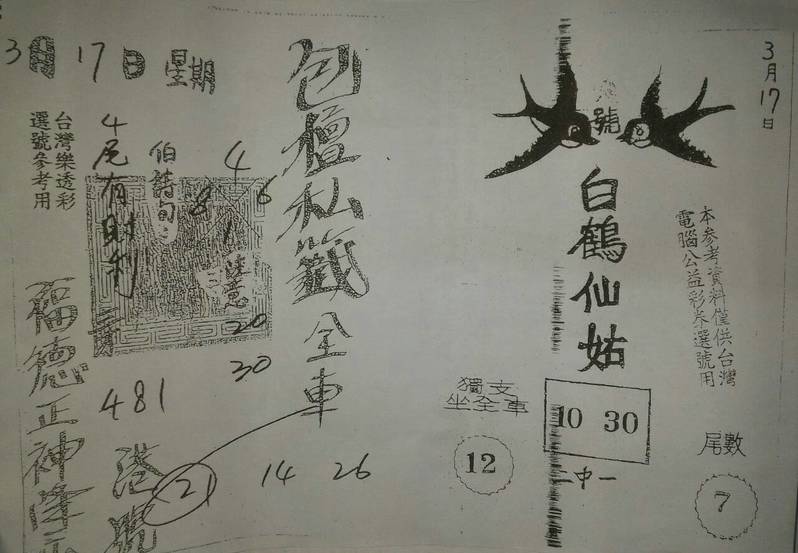 3月17日
號
白鶴仙姑
本參考資料僅供台灣
電腦公益彩券選號用
獨支
坐全車
12
10 30
二中一
尾數
7
3月17日 星期
台灣樂透彩
選號參考用
包壇私籤全車
伯詩句
4尾有財利
4 6
8 1
注意
20
30
481
港號
21 14 26
福德正神